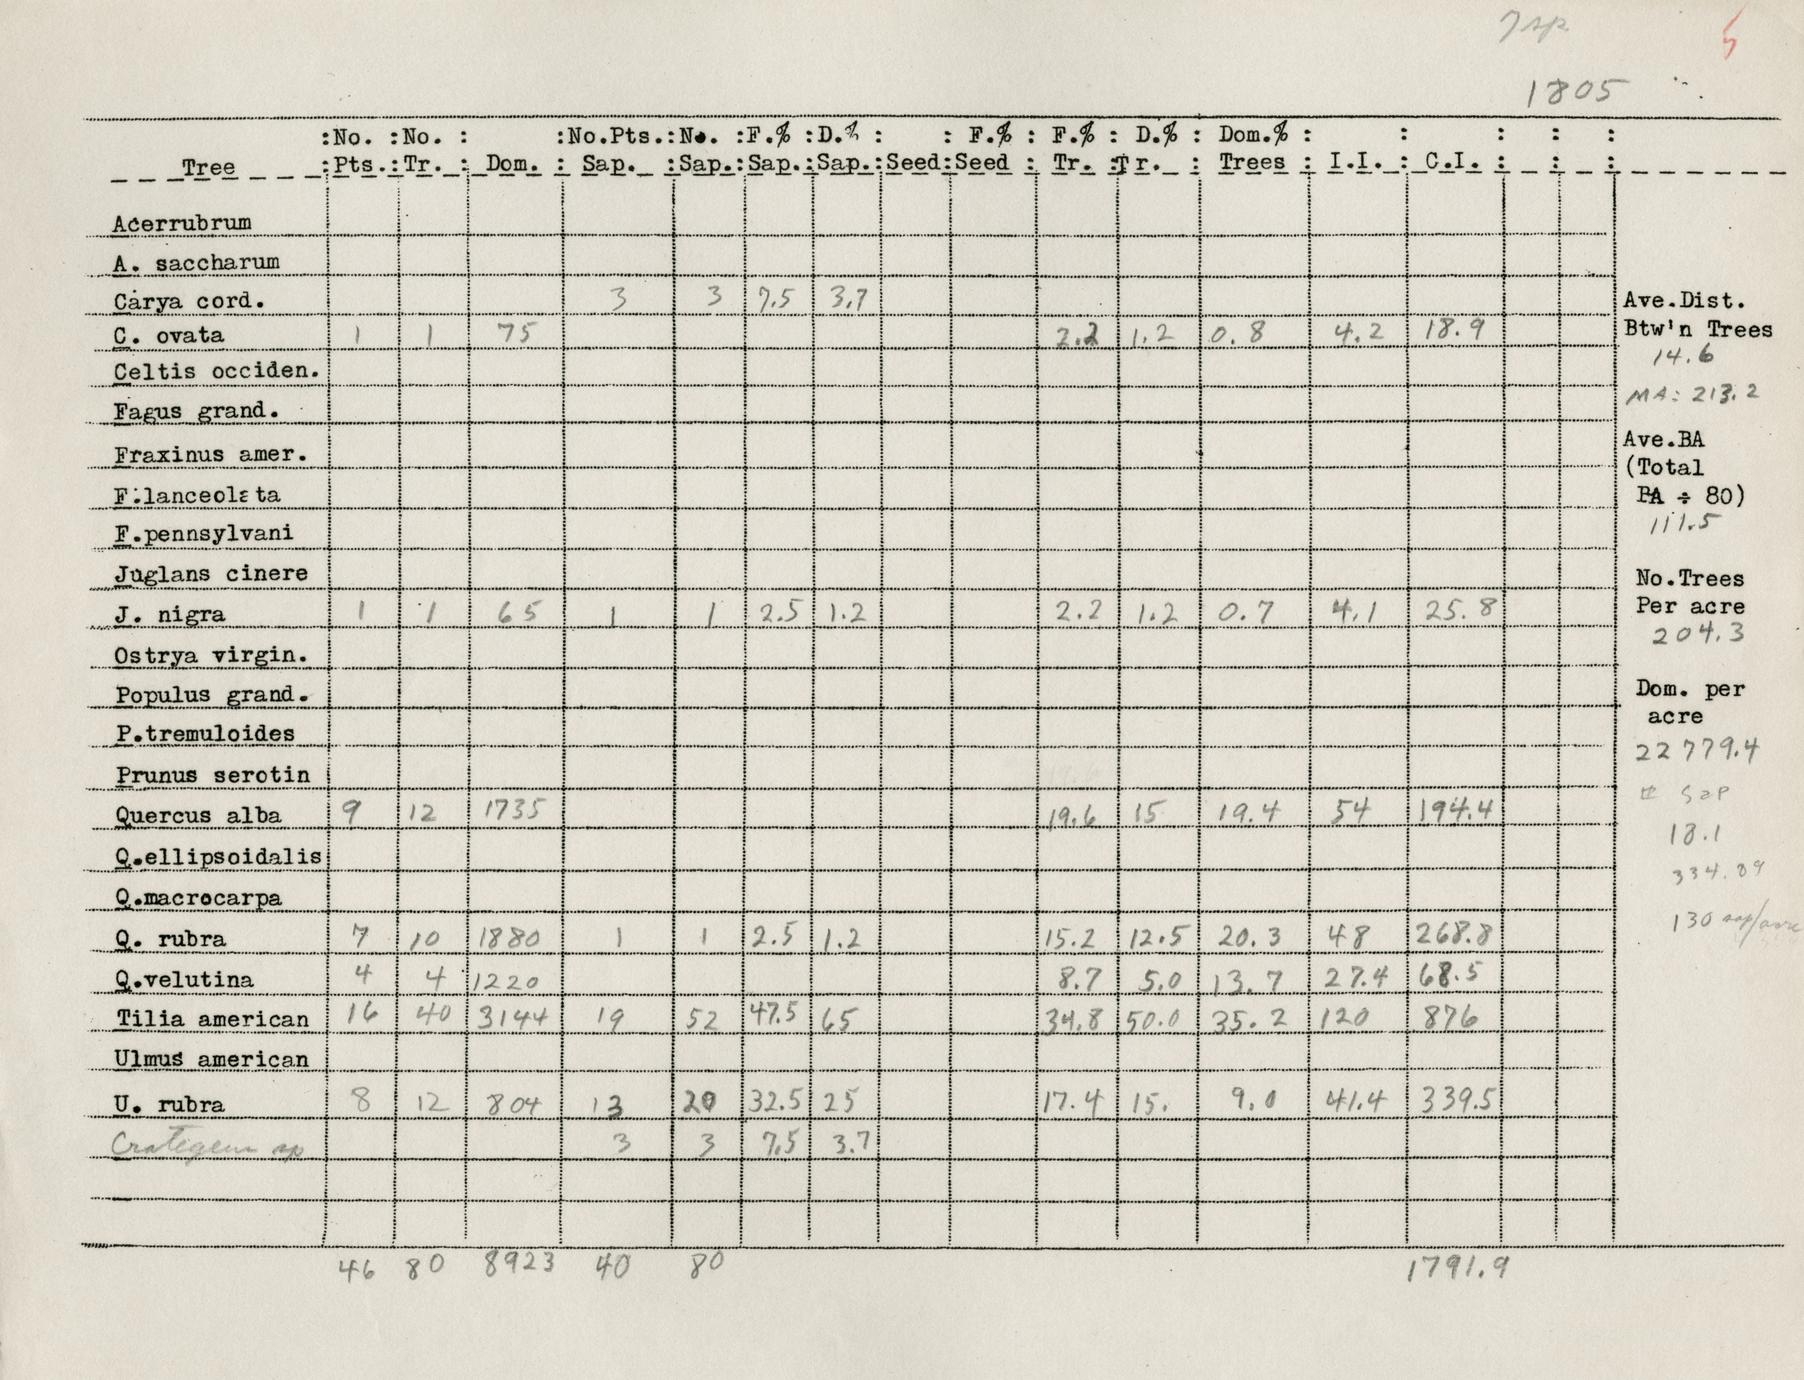 7sp 5
1805
:No. :No. : :No.Pts.:No. :F.% :D.% : : F.% : F.% : D.% : Dom.% : : : : :
Tree :Pts.:Tr. : Dom. : Sap. :Sap.:Sap.:Sap.:Seed:Seed : Tr. :Tr. : Trees : I.I. : C.I. : : :
Acerrubrum
A. saccharum
Carya cord. 3 3 7.5 3.7
C. ovata 1 1 75 2.2 1.2 0.8 4.2 18.9
Celtis occiden.
Fagus grand.
Fraxinus amer.
F.lanceolata
F.pennsylvani
Juglans cinere
J. nigra 1 1 65 1 1 2.5 1.2 2.2 1.2 0.7 4.1 25.8
Ostrya virgin.
Populus grand.
P.tremuloides
Prunus serotin
Quercus alba 9 12 1735 19.6 15 19.4 54 194.4
Q.ellipsoidalis
Q.macrocarpa
Q. rubra 7 10 1880 1 1 2.5 1.2 15.2 12.5 20.3 48 268.8
Q.velutina 4 4 1220 8.7 5.0 13.7 27.4 68.5
Tilia american 16 40 3144 19 52 47.5 65 34.8 50.0 35.2 120 876
Ulmus american
U. rubra 8 12 804 13 20 32.5 25 17.4 15. 9.0 41.4 339.5
Crategeus sp 3 3 7.5 3.7
46 80 8923 40 80 1791.9
Ave.Dist.
Btw'n Trees
14.6
MA: 213.2
Ave.BA
(Total
BA ÷ 80)
111.5
No.Trees
Per acre
204.3
Dom. per
acre
22779.4
# Sap
18.1
334.89
130 sap/acre